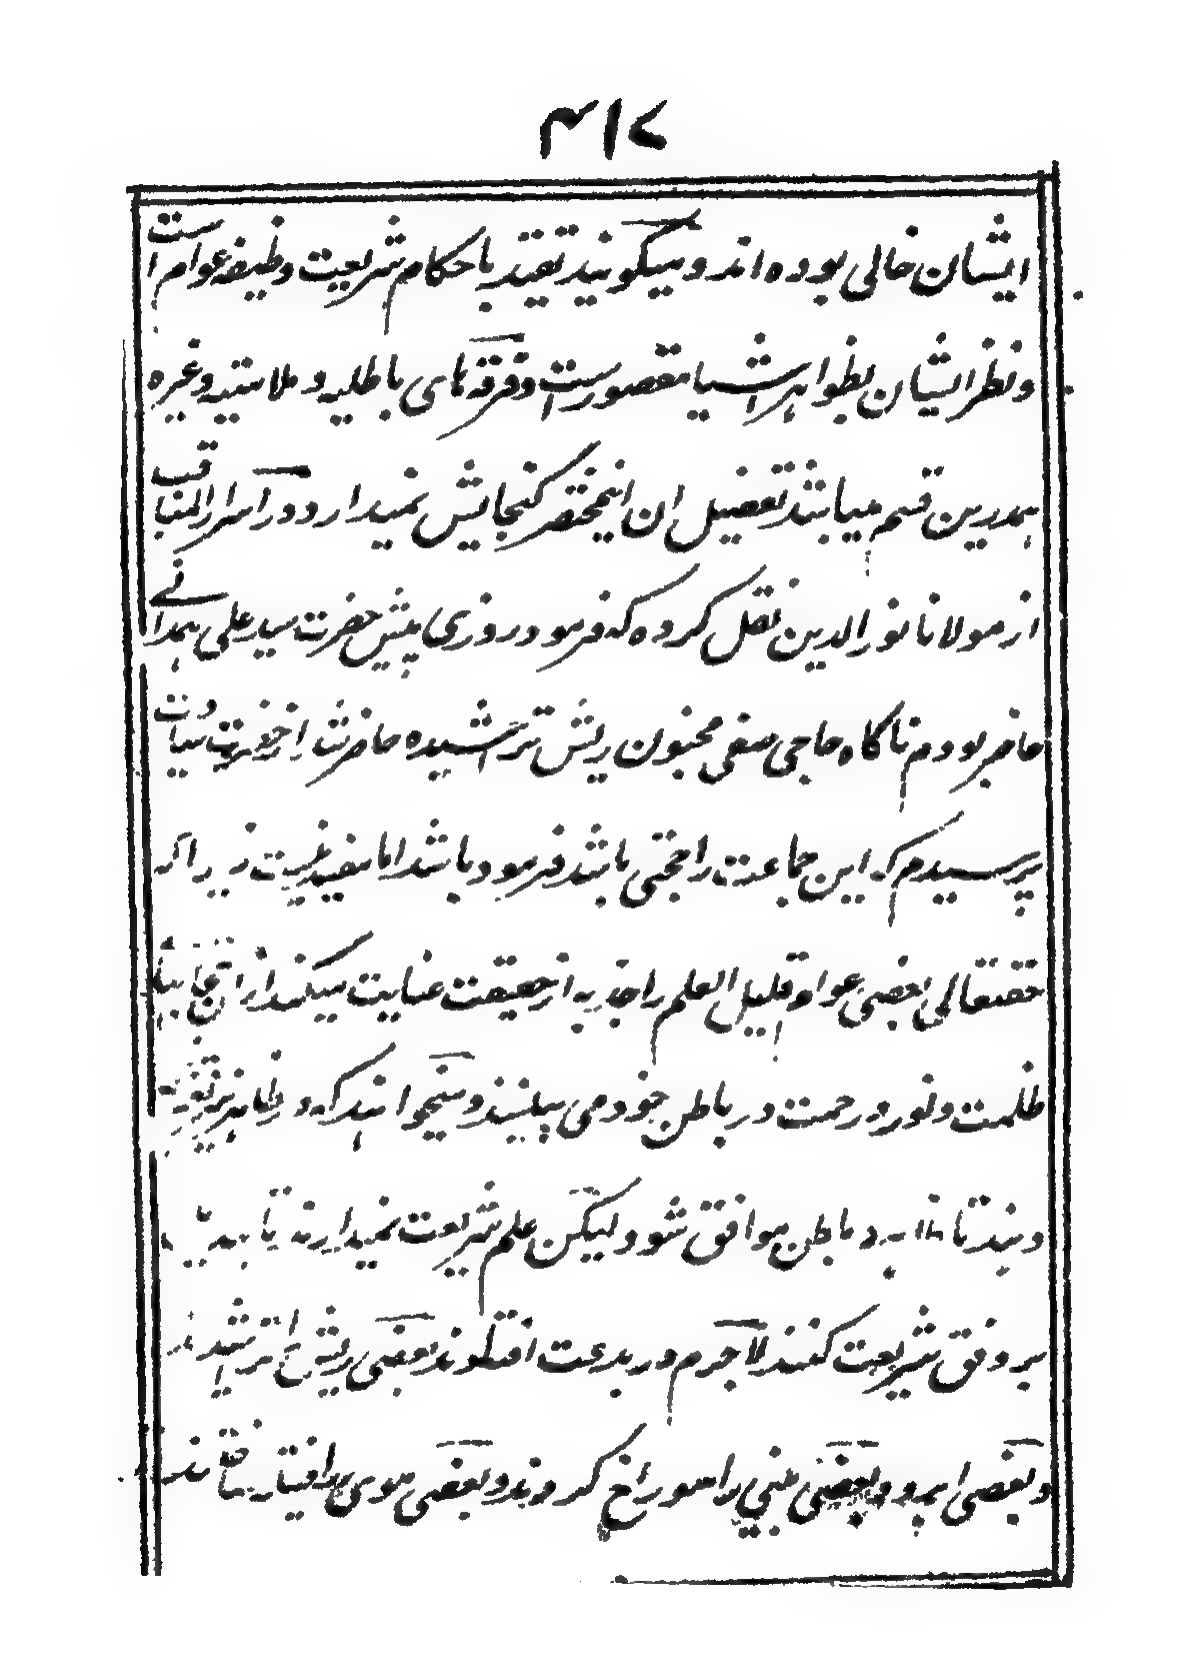 ۳۱۷
ایشان خالی بوده اند و میگویند تقید باحکام شریعت وظیفه عوام است
و نظر ایشان بظواهر اشیا مقصورست و فرقه های باطلیه و ملامتیه و غیره
همدرین قسم میباشند تفصیل ان اینمختصر گنجایش نمیدارد و در اسرار المناقب
از مولانا نور الدین نقل کرده که فرمود روزی پیش حضرت سید علی همدانے
حاضر بودم ناگاه حاجی صفی مجنون ریش تراشیده حاضر شد از حضرت سیادت
پرسیدم که این جماعت را جختی باشد فرمود باشد اما مفید نیست زیرا که
حقتعالی بعضی عوام قلیل العلم را جذبه از حقیقت عنایت میکند از انجا
ظلمت و نور و رحمت در باطن خود می بینند و میخواهند که در ظاهر نیز
دهند تا باطن موافق شود و لیکن علم شریعت نمیدارند تا
بر وفق شریعت کنند لاجرم در بدعت افتادند بعضی ریش تراشیدند
و بعضی ابرو و بعضی بینی را سوراخ کردند و بعضی موی